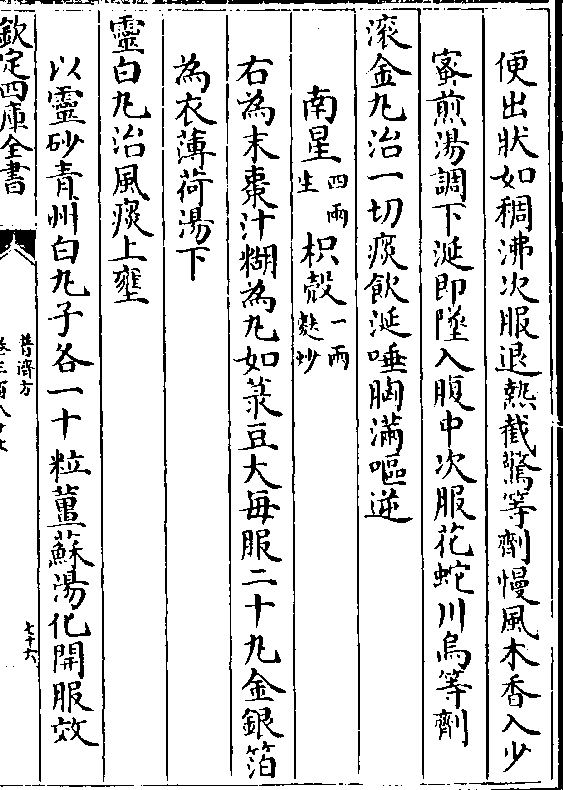 便出狀如稠沸次服退熱截驚等劑慢風木香入少
蜜煎湯調下涎即墜入腹中次服花蛇川烏等劑
滚金丸治一切痰飲涎唾胸滿嘔逆
南星四兩生 枳殼一兩麩炒
右為末棗汁糊為丸如菉豆大每服二十丸金銀箔
為衣薄荷湯下
靈白丸治風痰上壅
以靈砂青州白丸子各一十粒薑蘇湯化開服效
欽定四庫全書
普濟方
七十六